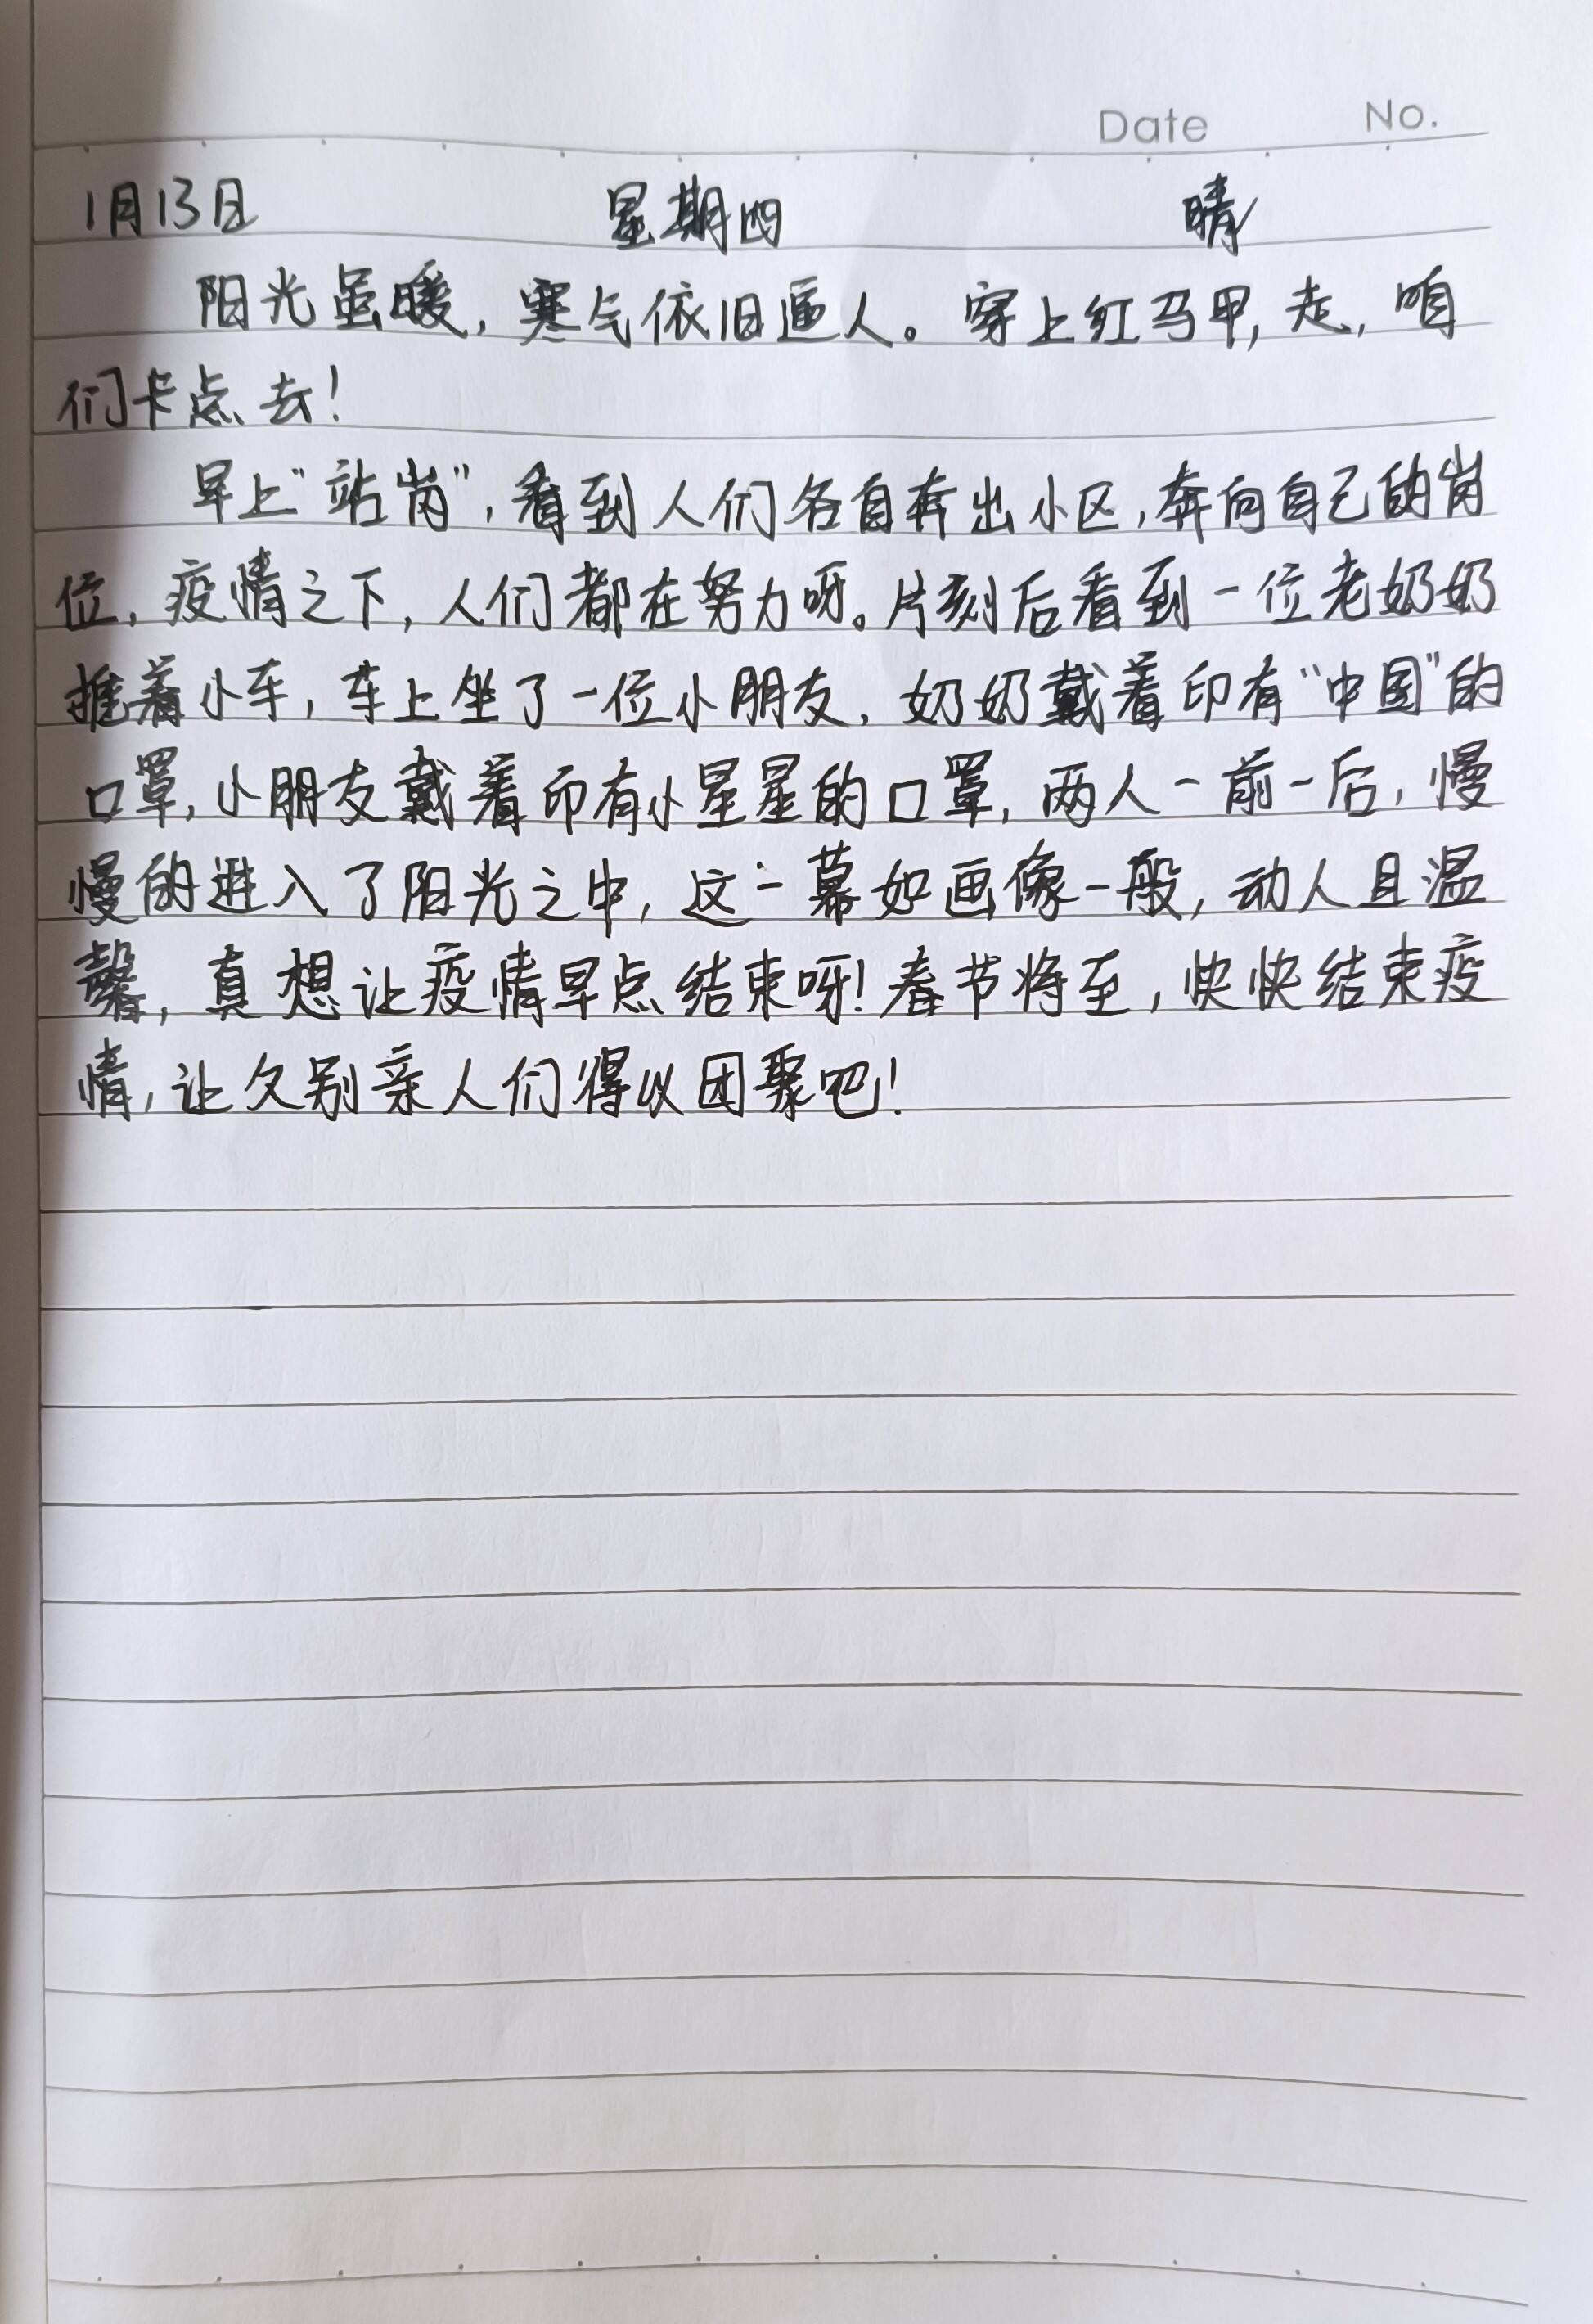 Date No.
1月13日 星期四 晴
阳光虽暖,寒气依旧逼人。穿上红马甲,走,咱
们卡点去!
早上“站岗”,看到人们各自奔出小区,奔向自己的岗
位,疫情之下,人们都在努力呀。片刻后看到一位老奶奶
推着小车,车上坐了一位小朋友,奶奶戴着印有“中国”的
口罩,小朋友戴着印有小星星的口罩,两人一前一后,慢
慢的进入了阳光之中,这一幕如画像一般,动人且温
馨,真想让疫情早点结束呀!春节将至,快快结束疫
情,让久别亲人们得以团聚吧!